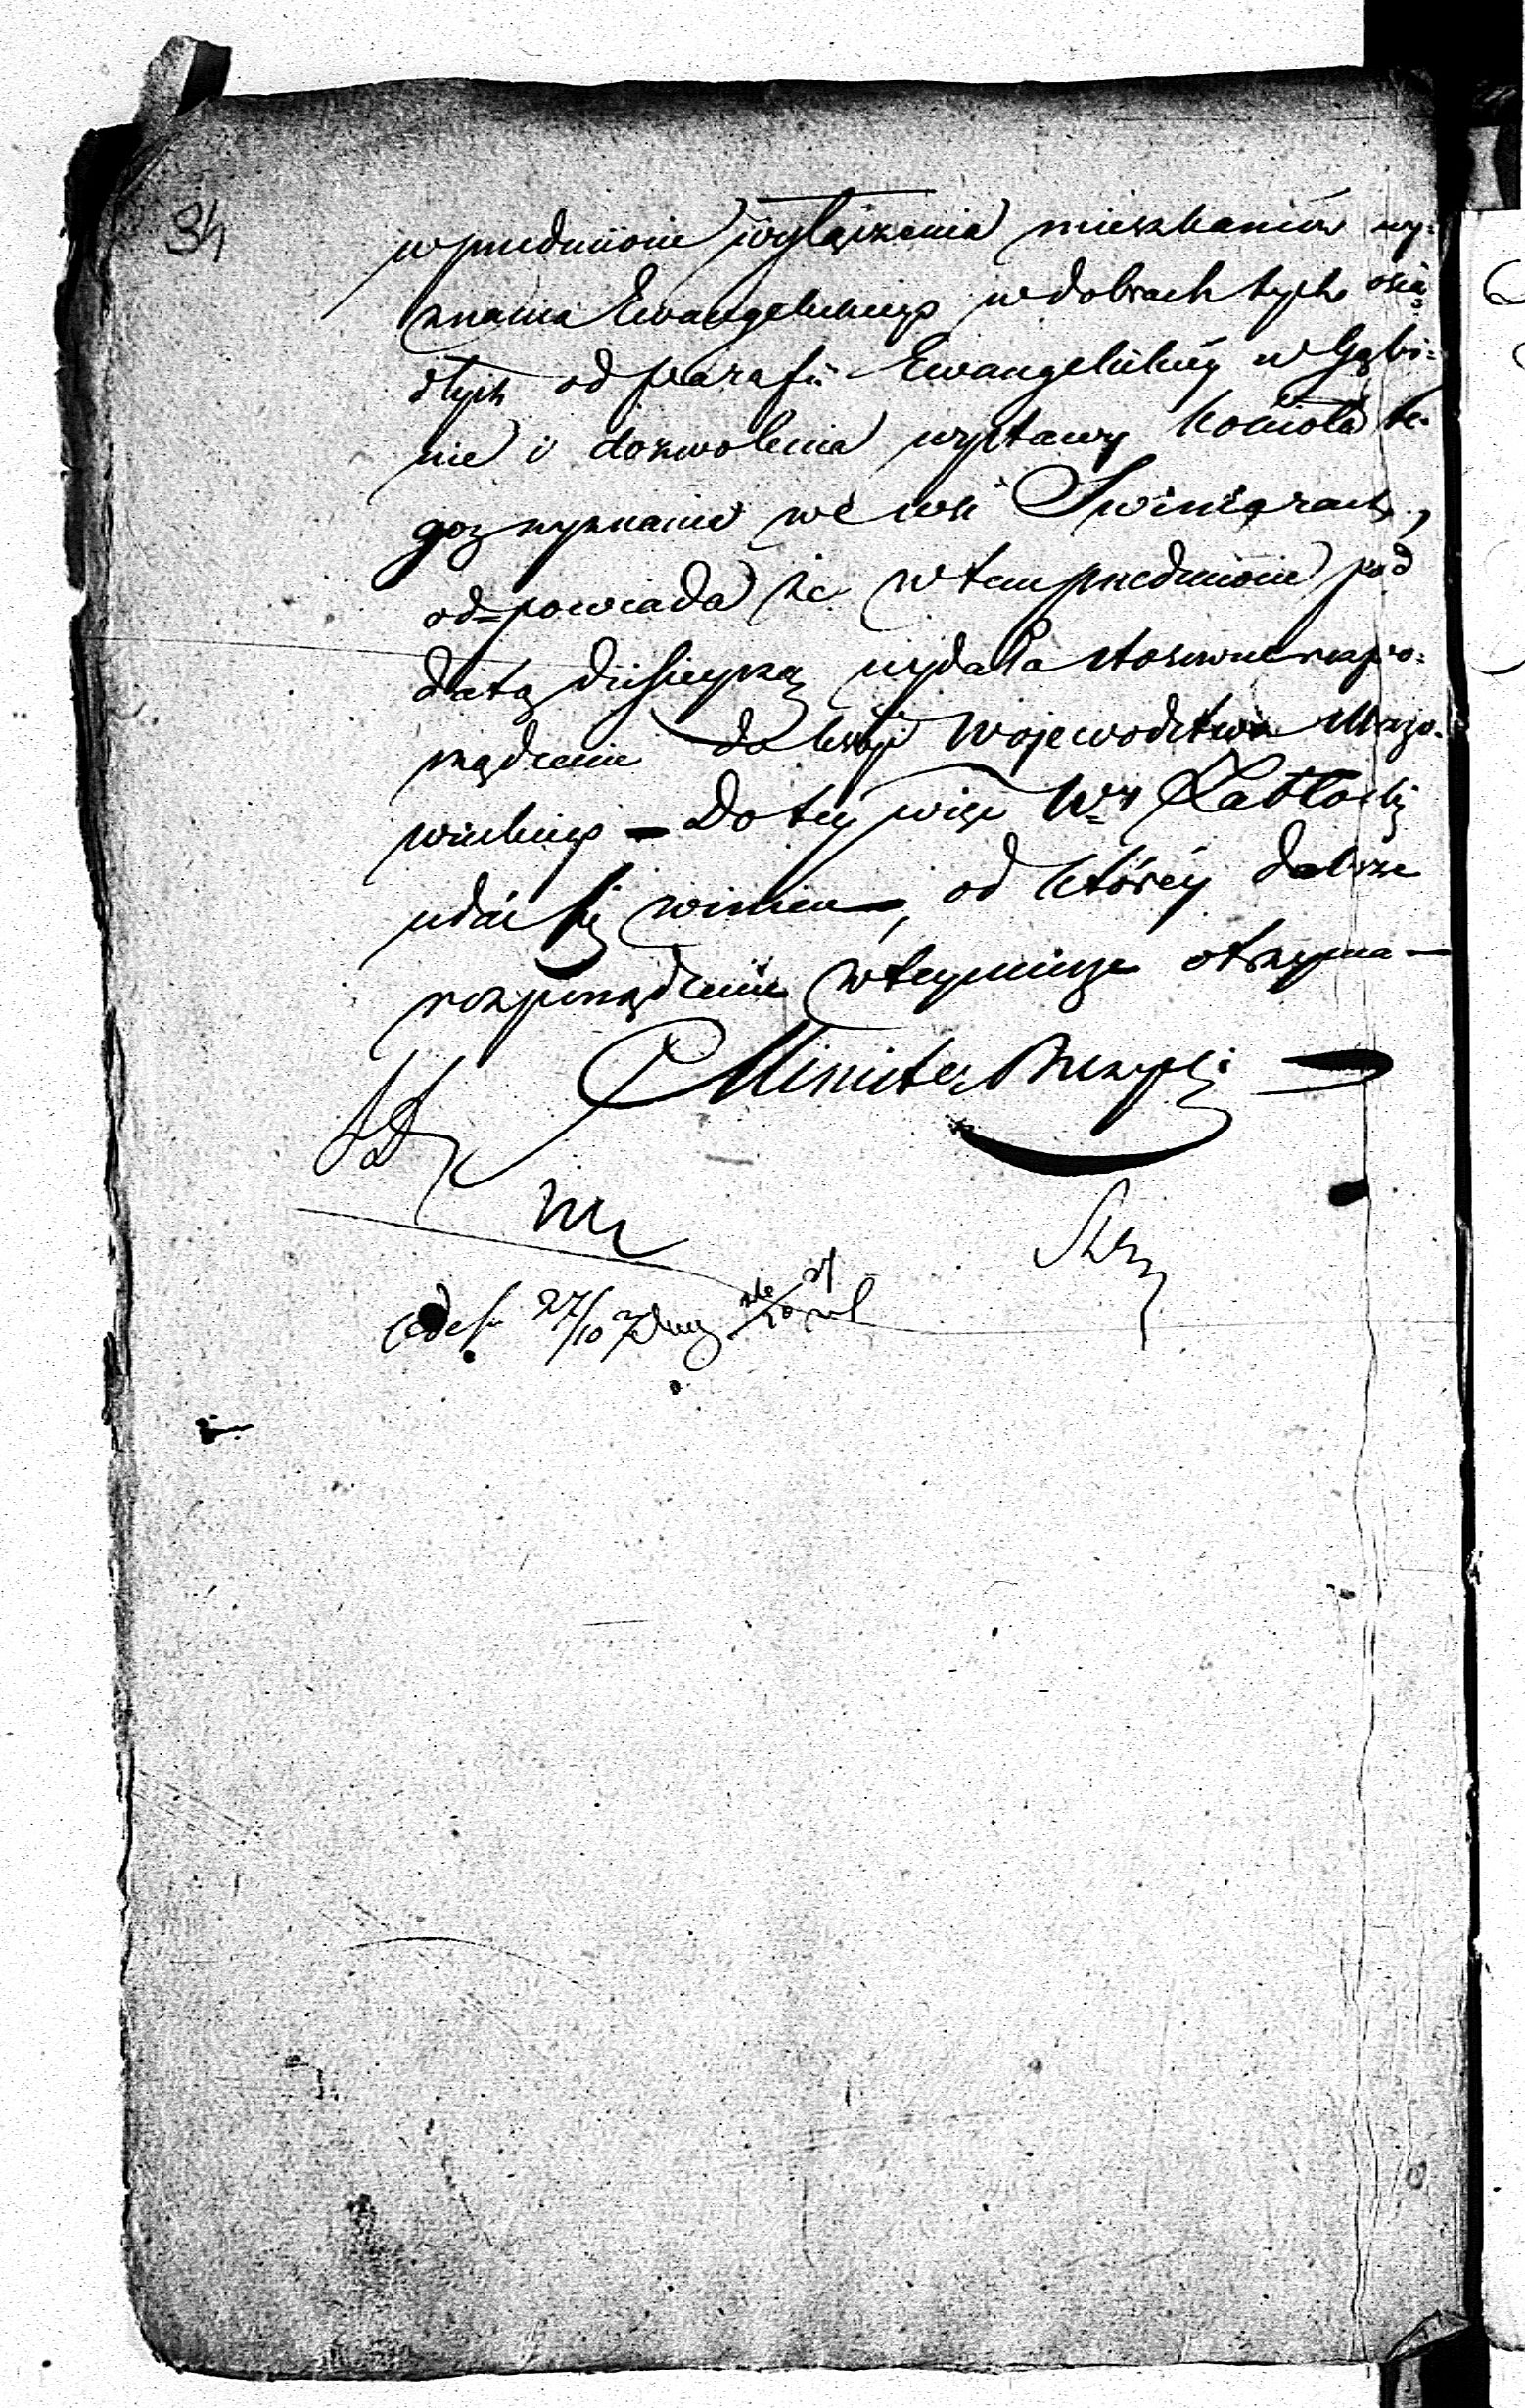 34
w przedmiocie wyłączenia mieszkańców wy=
znania Ewangelickiego w dobrach tych osia=
dłych od parafii Ewangelickiéy w Gąbi=
nie i dozwolenia wystawy kościoła te=
goż wyznania we wsi Swiniarach,
od=powiada że w tem przedmiocie pod
datą dzisieyszą wydała stosowne rozpo=
rządzenie do Kssyi Województwa Mazo=
wieckiego – Do téy więc Wny
udać się winien, od któréy dalsze
rozporządzenie w tey mierze otrzyma –
Minister Prezydu
27/10